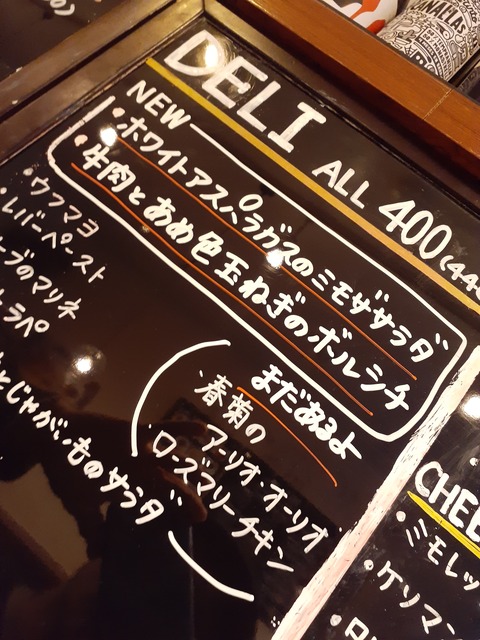 DELI ALL 400(44
NEW
・ホワイトアスパラガスのミモザサラダ
・牛肉とあめ色玉ねぎのボルシチ
・ウフマヨ
・レバーペースト
のマリネ
ラペ
とじゃがいものサラダ
まだあるよ
・春菊の
アーリオ・オーリオ
・ローズマリーチキン
CHEE
・ミモレッ
・ケソマン